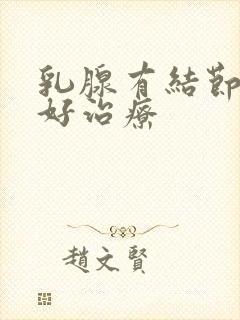 乳腺有結節
好治療
趙文賢